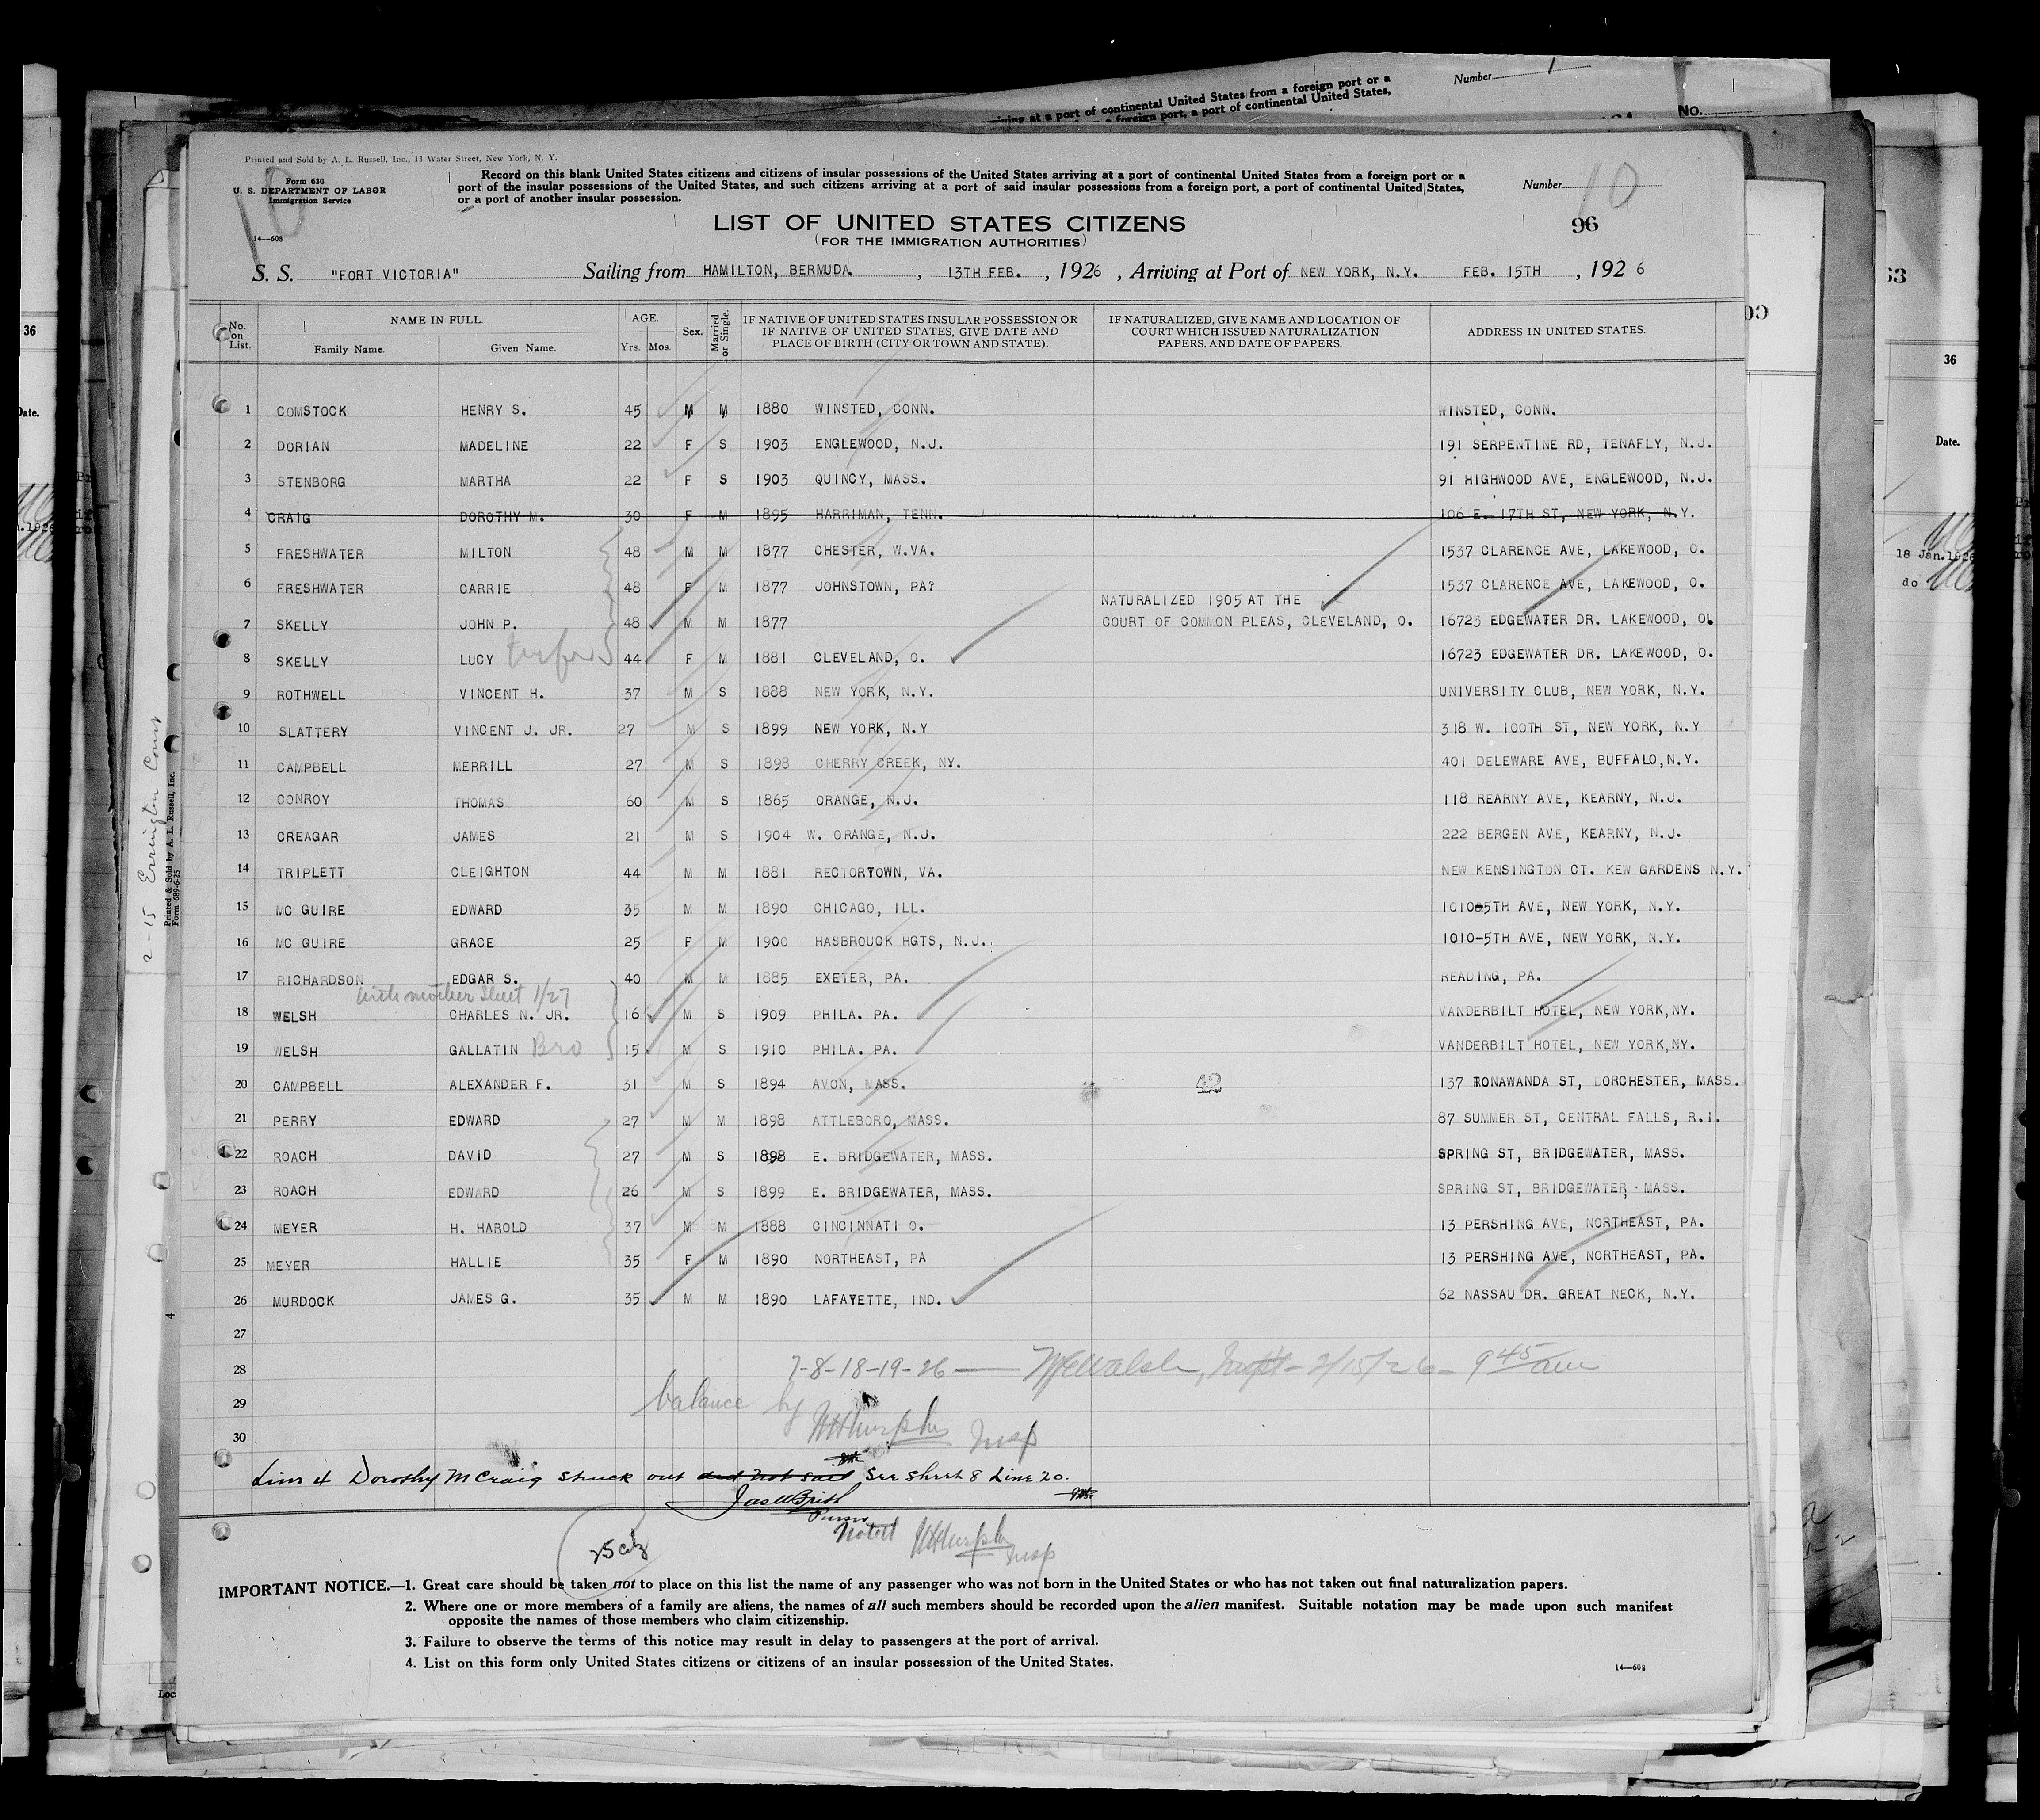 Number 1
ving at a port of continental United States from a foreign port or a
a foreign port, a port of continental United States,
No.
Printed and Sold by A. L. Russell, Inc., 13 Water Street, New York, N. Y.
Form 630
U. S. DEPARTMENT OF LABOR
Immigration Service
14—608
10
Record on this blank United States citizens and citizens of insular possessions of the United States arriving at a port of continental United States from a foreign port or a
port of the insular possessions of the United States, and such citizens arriving at a port of said insular possessions from a foreign port, a port of continental United States,
or a port of another insular possession.
Number 10
96
LIST OF UNITED STATES CITIZENS
(FOR THE IMMIGRATION AUTHORITIES)
S. S. "FORT VICTORIA" Sailing from HAMILTON, BERMUDA, 13TH FEB., 1926, Arriving at Port of NEW YORK, N.Y. FEB. 15TH, 1926
No. on List. NAME IN FULL. Family Name. Given Name. AGE. Yrs. Mos. Sex. Married or Single. IF NATIVE OF UNITED STATES INSULAR POSSESSION OR IF NATIVE OF UNITED STATES, GIVE DATE AND PLACE OF BIRTH (CITY OR TOWN AND STATE). IF NATURALIZED, GIVE NAME AND LOCATION OF COURT WHICH ISSUED NATURALIZATION PAPERS, AND DATE OF PAPERS. ADDRESS IN UNITED STATES.
1 COMSTOCK HENRY S. 45 M M 1880 WINSTED, CONN. WINSTED, CONN.
2 DORIAN MADELINE 22 F S 1903 ENGLEWOOD, N.J. 191 SERPENTINE RD, TENAFLY, N.J.
3 STENBORG MARTHA 22 F S 1903 QUINCY, MASS. 91 HIGHWOOD AVE, ENGLEWOOD, N.J.
4 CRAIG DOROTHY M. 30 F M 1895 HARRIMAN, TENN. 106 E. 17TH ST, NEW YORK, N.Y.
5 FRESHWATER MILTON 48 M M 1877 CHESTER, W.VA. 1537 CLARENCE AVE, LAKEWOOD, O.
6 FRESHWATER CARRIE 48 F M 1877 JOHNSTOWN, PA? 1537 CLARENCE AVE, LAKEWOOD, O.
NATURALIZED 1905 AT THE
7 SKELLY JOHN P. 48 M M 1877 COURT OF COMMON PLEAS, CLEVELAND, O. 16723 EDGEWATER DR. LAKEWOOD, O.
8 SKELLY LUCY 44 F M 1881 CLEVELAND, O. 16723 EDGEWATER DR. LAKEWOOD, O.
9 ROTHWELL VINCENT H. 37 M S 1888 NEW YORK, N.Y. UNIVERSITY CLUB, NEW YORK, N.Y.
10 SLATTERY VINCENT J. JR. 27 M S 1899 NEW YORK, N.Y 318 W. 100TH ST, NEW YORK, N.Y
11 CAMPBELL MERRILL 27 M S 1898 CHERRY CREEK, NY. 401 DELEWARE AVE, BUFFALO,N.Y.
12 CONROY THOMAS 60 M S 1865 ORANGE, N.J. 118 REARNY AVE, KEARNY, N.J.
13 CREAGAR JAMES 21 M S 1904 W. ORANGE, N.J. 222 BERGEN AVE, KEARNY, N.J.
14 TRIPLETT CLEIGHTON 44 M M 1881 RECTORTOWN, VA. NEW KENSINGTON CT. KEW GARDENS N.Y.
15 MC GUIRE EDWARD 35 M M 1890 CHICAGO, ILL. 1010-5TH AVE, NEW YORK, N.Y.
16 MC GUIRE GRACE 25 F M 1900 HASBROUCK HGTS, N.J. 1010-5TH AVE, NEW YORK, N.Y.
17 RICHARDSON EDGAR S. 40 M M 1885 EXETER, PA. READING, PA.
with mother Sheet 1/27
18 WELSH CHARLES N. JR. 16 M S 1909 PHILA. PA. VANDERBILT HOTEL, NEW YORK,NY.
19 WELSH GALLATIN Bro 15 M S 1910 PHILA. PA. VANDERBILT HOTEL, NEW YORK,NY.
20 CAMPBELL ALEXANDER F. 31 M S 1894 AVON, MASS. 42 137 TONAWANDA ST, DORCHESTER, MASS.
21 PERRY EDWARD 27 M M 1898 ATTLEBORO, MASS. 87 SUMMER ST, CENTRAL FALLS, R.I.
22 ROACH DAVID 27 M S 1898 E. BRIDGEWATER, MASS. SPRING ST, BRIDGEWATER, MASS.
23 ROACH EDWARD 26 M S 1899 E. BRIDGEWATER, MASS. SPRING ST, BRIDGEWATER, MASS.
24 MEYER H. HAROLD 37 M M 1888 CINCINNATI O. 13 PERSHING AVE, NORTHEAST, PA.
25 MEYER HALLIE 35 F M 1890 NORTHEAST, PA 13 PERSHING AVE, NORTHEAST, PA.
26 MURDOCK JAMES G. 35 M M 1890 LAFAYETTE, IND. 62 NASSAU DR. GREAT NECK, N.Y.
27
28 7-8-18-19-26 — Walsh, Inspt - 2/15/26 - 9 45 am
29 balance by
30 Insp
Line 4 Dorothy M Craig struck out and not sail See sheet 8 Line 20.
Purser
Noted Insp
IMPORTANT NOTICE.—1. Great care should be taken not to place on this list the name of any passenger who was not born in the United States or who has not taken out final naturalization papers.
2. Where one or more members of a family are aliens, the names of all such members should be recorded upon the alien manifest. Suitable notation may be made upon such manifest
opposite the names of those members who claim citizenship.
3. Failure to observe the terms of this notice may result in delay to passengers at the port of arrival.
4. List on this form only United States citizens or citizens of an insular possession of the United States.
14—608
2-15 Errington Court
Printed & Sold by A. L. Russell, Inc.
Form 689-6-25
4
36
Date.
63
36
Date.
18 Jan. 1926
do